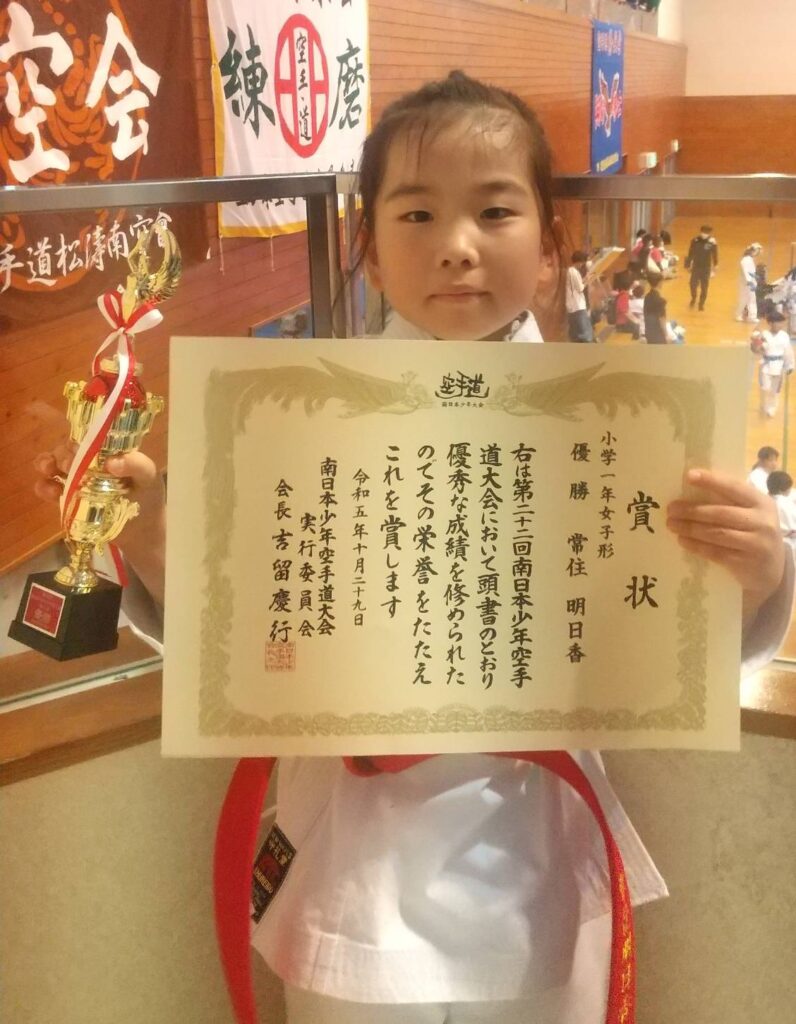 空会
手道松濤南空會
練磨
空手道
空手道
南日本少年大会
賞状
小学一年女子形
優勝 常住 明日香
右は第二十二回南日本少年空手
道大会において頭書のとおり
優秀な成績を修められた
のでその栄誉をたたえ
これを賞します
令和五年十月二十九日
南日本少年空手道大会
実行委員会
会長 吉留慶行